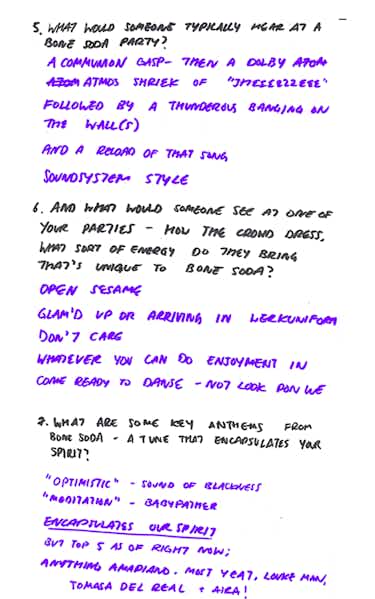 5. WHAT WOULD SOMEONE TYPICALLY HEAR AT A
BONE SODA PARTY?
A COMMUNION GASP - THEN A DOLBY ATOM
ATOM ATMOS SHRIEK OF "JHEEEEZZEEE"
FOLLOWED BY A THUNDEROUS BANGING ON
THE WALL(S)
AND A RELOAD OF THAT SONG
SOUNDSYSTEM STYLE
6. AND WHAT WOULD SOMEONE SEE AT ONE OF
YOUR PARTIES - HOW THE CROWD DRESS,
WHAT SORT OF ENERGY DO THEY BRING
THAT'S UNIQUE TO BONE SODA?
OPEN SESAME
GLAM'D UP OR ARRIVING IN WERKUNIFORM
DON'T CARE
WHATEVER YOU CAN DO ENJOYMENT IN
COME READY TO DANSE - NOT LOOK PON WE
7. WHAT ARE SOME KEY ANTHEMS FROM
BONE SODA - A TUNE THAT ENCAPSULATES YOUR
SPIRIT?
"OPTIMISTIC" - SOUND OF BLACKNESS
"MEDITATION" - BABYFATHER
ENCAPSULATES OUR SPIRIT
BUT TOP 5 AS OF RIGHT NOW;
ANYTHING AMAPIANO. MOST YEAT, LOUKE MAN,
TOMASA DEL REAL + AIRA!